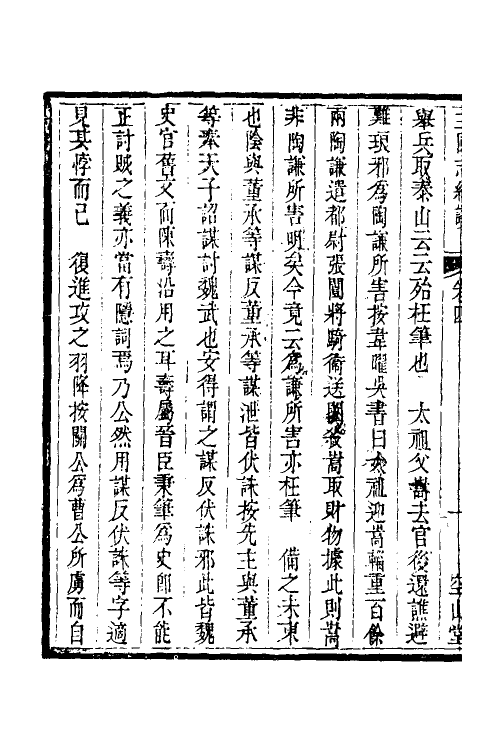 三國志 卷四 一 空山堂
舉兵取泰山云云殆枉筆也　太祖父嵩去官後還譙避
難琅邪為陶謙所害按韋曜吳書曰太祖迎嵩輜重百餘
兩陶謙遣都尉張闓將騎衛送闓殺嵩取財物據此則嵩
非陶謙所害明矣今竟云為謙所害亦枉筆　備之未東
也陰與董承等謀反董承等謀泄皆伏誅按先主與董承
等奉天子詔謀討魏武也安得謂之謀反伏誅邪此皆魏
史官舊文而陳壽沿用之耳壽屬晉臣秉筆為史郎不能
正討賊之義亦當有隱詞焉乃公然用謀反伏誅等字適
見其悖而已　復進攻之羽降按關公為曹公所虜而自